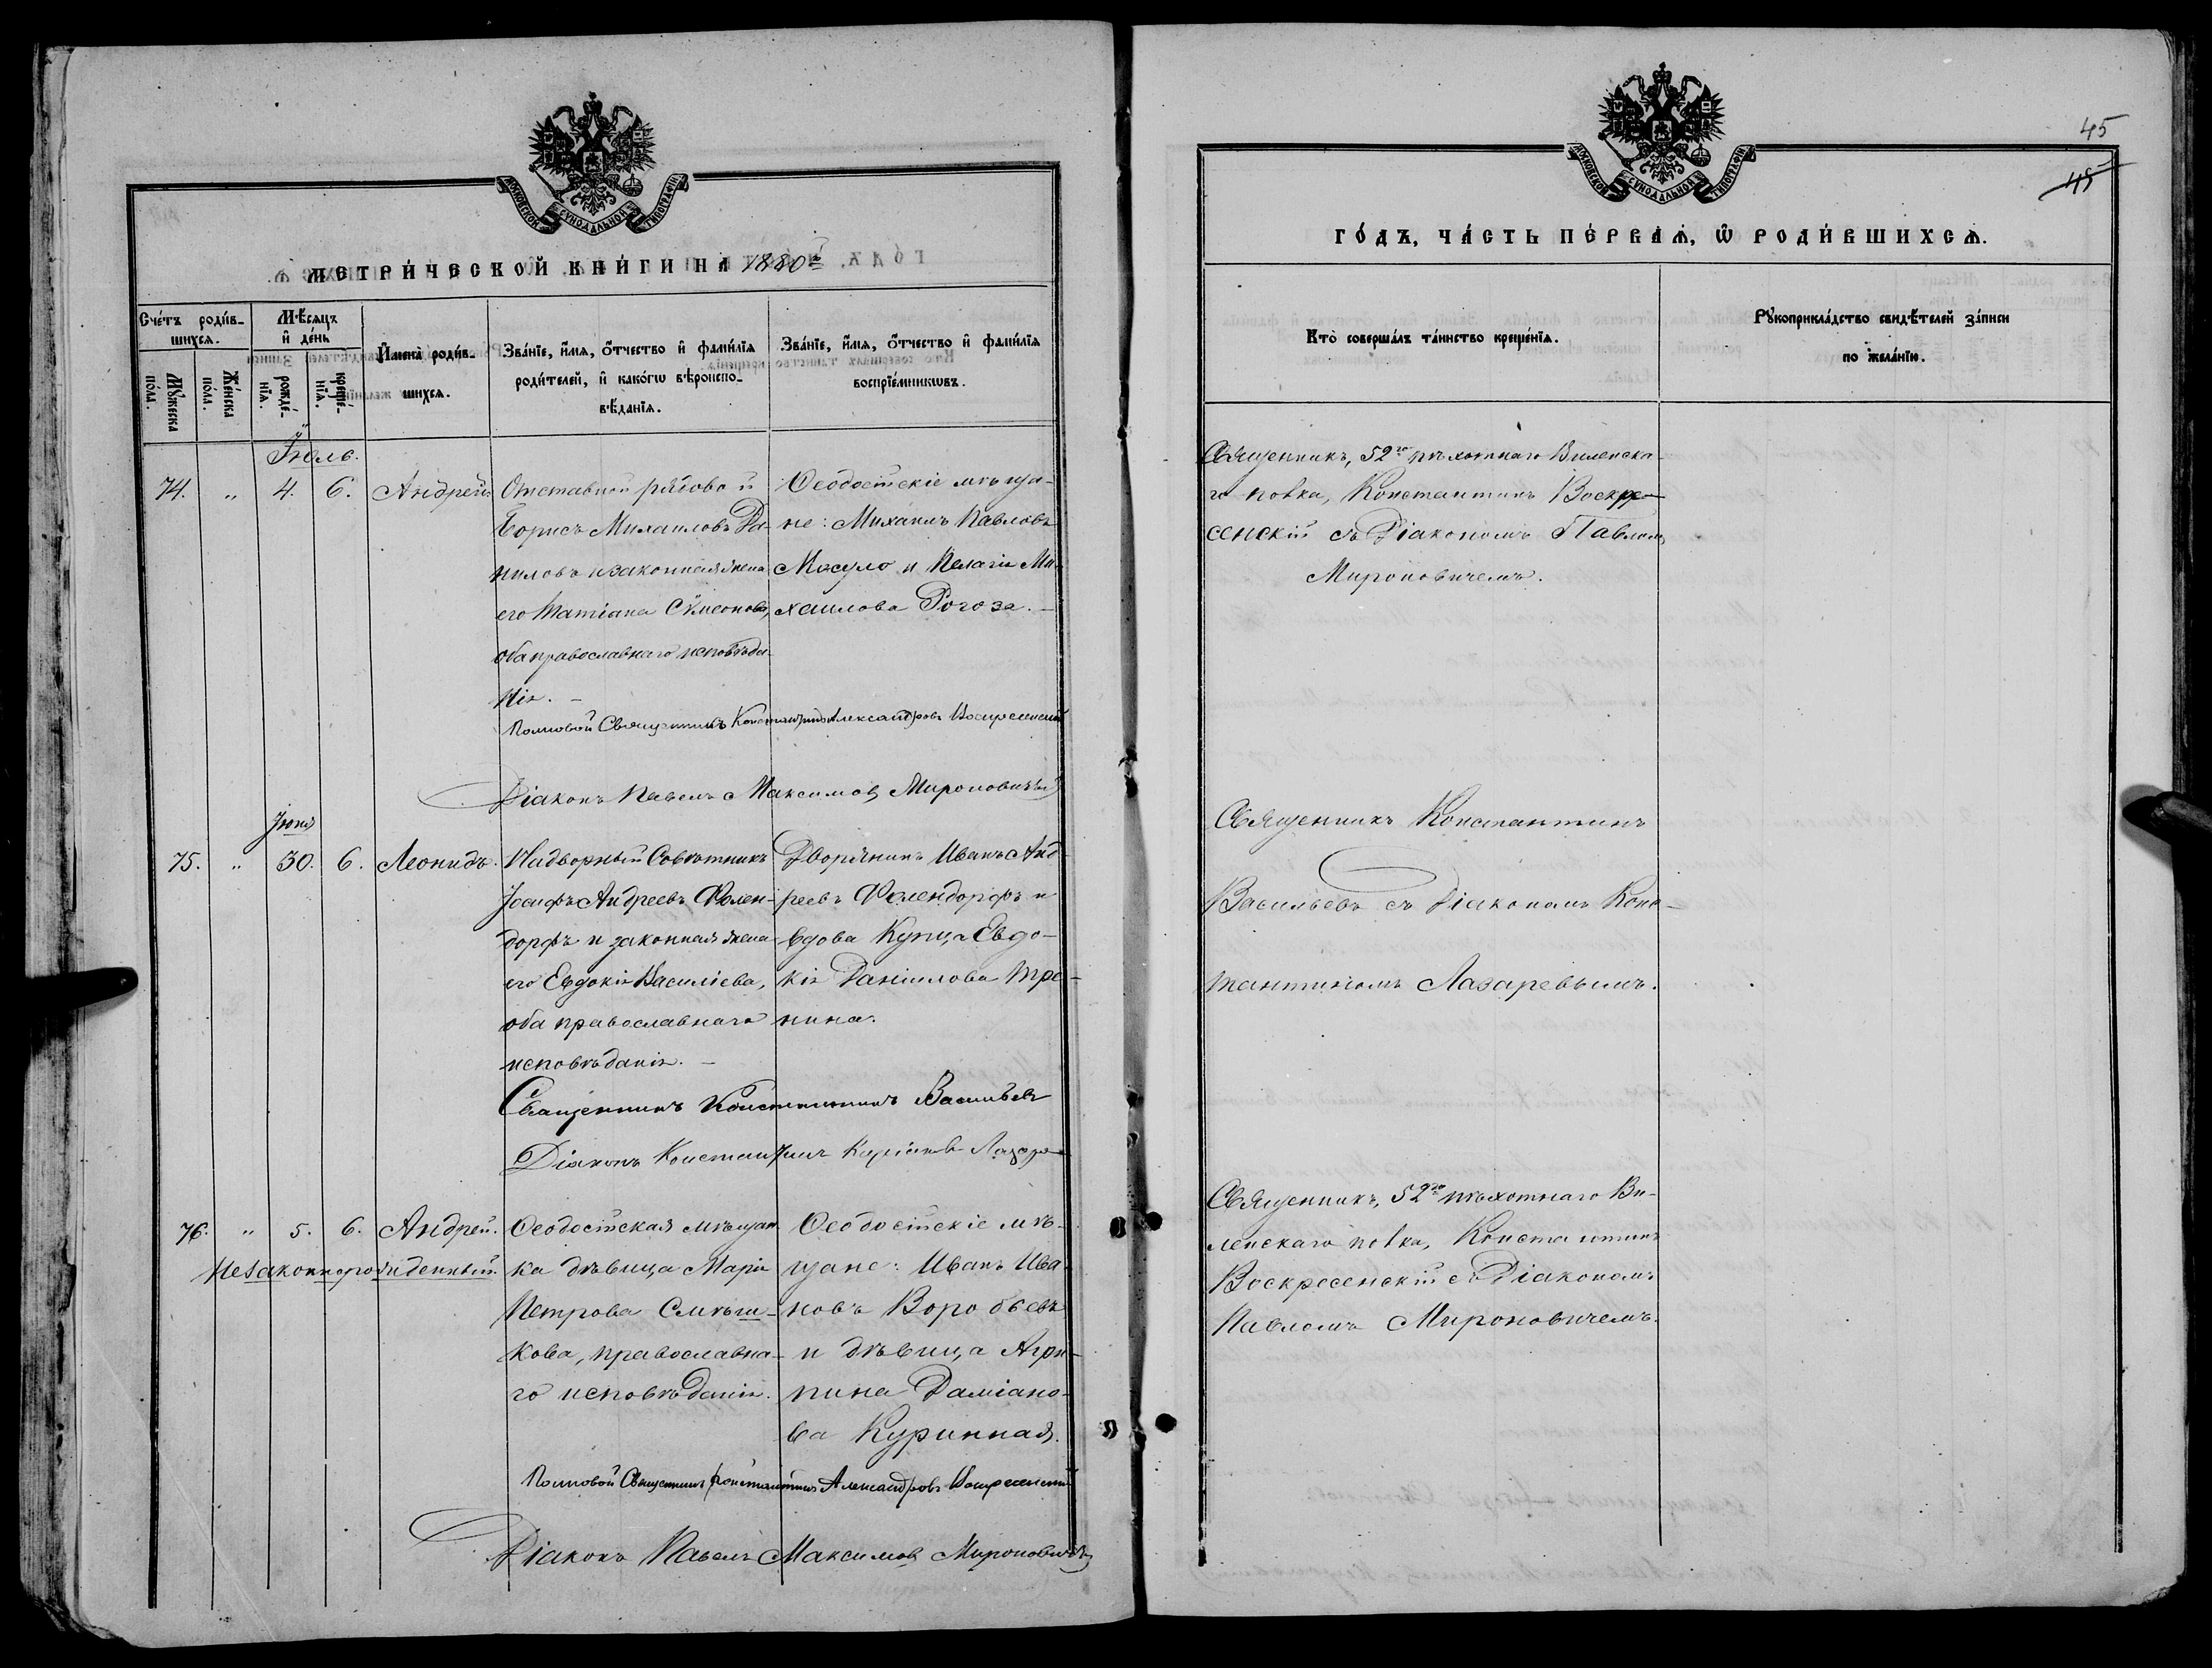 МОСКОВСКОЙ СУНОДАЛЬНОЙ ТИПОГРАФІИ
МЕТРИ́ЧЕСКОЙ КНИ́ГИ НА 1880й
Сче́тъ роди́в-
шихсѧ.
Мꙋ́жеска
по́ла.
Же́нска
по́ла.
Мѣ́сѧцъ
и҆ де́нь
рожде́-
нїѧ.
креще́-
нїѧ.
И҆мена̀ роди́в-
шихсѧ.
Зва́нїе, и҆́мѧ, ѻ҆́тчество и҆ фами́лїѧ
роди́телей, и҆ како́гѡ вѣроиспо-
вѣ́данїѧ.
Зва́нїе, и҆́мѧ, ѻ҆́тчество и҆ фами́лїѧ
воспрїе́мникѡвъ.
Іюль.
74. " 4. 6. Андрей
Отставной рядовой
Борисъ Михаиловъ Да-
ниловъ и законная жена
его Татіана Сѵмеонова,
оба православнаго исповѣда-
нія. –
Ѳеодосійскіе мѣща-
не: Михаилъ Павловъ
Мосуло и Пелагія Ми-
хаилова Рогоза. –
Полковой Священникъ Константинъ Александровъ Воскресенскій
Діаконъ Павелъ Максимовъ Мироновичъ
Іюня
75. " 30. 6. Леонидъ.
Надворный Совѣтникъ
Іосифъ Андреевъ Фолен-
дорфъ и законная жена
его Евдокія Василіева,
оба православнаго
исповѣданія. –
Дворянинъ Иванъ Анд-
реевъ Фолендорфъ и
вдова Купца Евдо-
кія Даніилова Тре-
нина.
Священникъ Константинъ Васильевъ
Діаконъ Константинъ Лазаре
76. " 5. 6. Андрей.
Незаконнорожденный.
Ѳеодосійская мѣщан-
ка дѣвица Марія
Петрова Смѣш-
кова, православна-
го исповѣданія.
Ѳеодосійскіе мѣ-
щане: Иванъ Ива-
новъ Воробьевъ
и дѣвица Агри-
пина Даміано-
ва Куринная.
Полковой Священникъ Константинъ Александровъ Воскресенскій
Діаконъ Павелъ Максимовъ Мироновичъ
45
45
МОСКОВСКОЙ СУНОДАЛЬНОЙ ТИПОГРАФІИ
ГО́ДЪ, ЧА́СТЬ ПЕ́РВАѦ, Ѡ҆ РОДИ́ВШИХСѦ.
Кто̀ соверша́лъ та́инство креще́нїѧ.
Рꙋкоприкла́дство свидѣ́телей за́писи
по жела́нїю.
Священникъ, 52го пѣхотнаго Виленска-
го полка, Константинъ Воскре-
сенскій съ Діакономъ Павломъ
Мироновичемъ.
Священникъ Константинъ
Васильевъ съ Діакономъ Конс-
тантиномъ Лазаревымъ.
Священникъ, 52го пѣхотнаго Ви-
ленскаго полка, Константинъ
Воскресенскій съ Діакономъ
Павломъ Мироновичемъ.